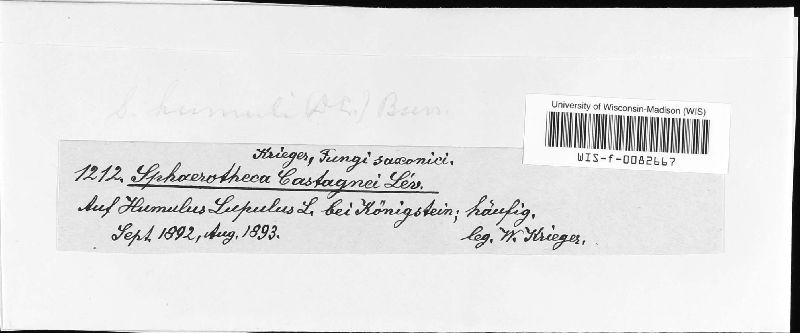 University of Wisconsin-Madison (WIS)
WIS-f-0082667
S. humuli (DC.) Burr.
Krieger, Fungi saxonici.
1212. Sphaerotheca Castagnei Lév.
Auf Humulus Lupulus L. bei Königstein; häufig.
Sept. 1892, Aug. 1893. leg. W. Krieger.